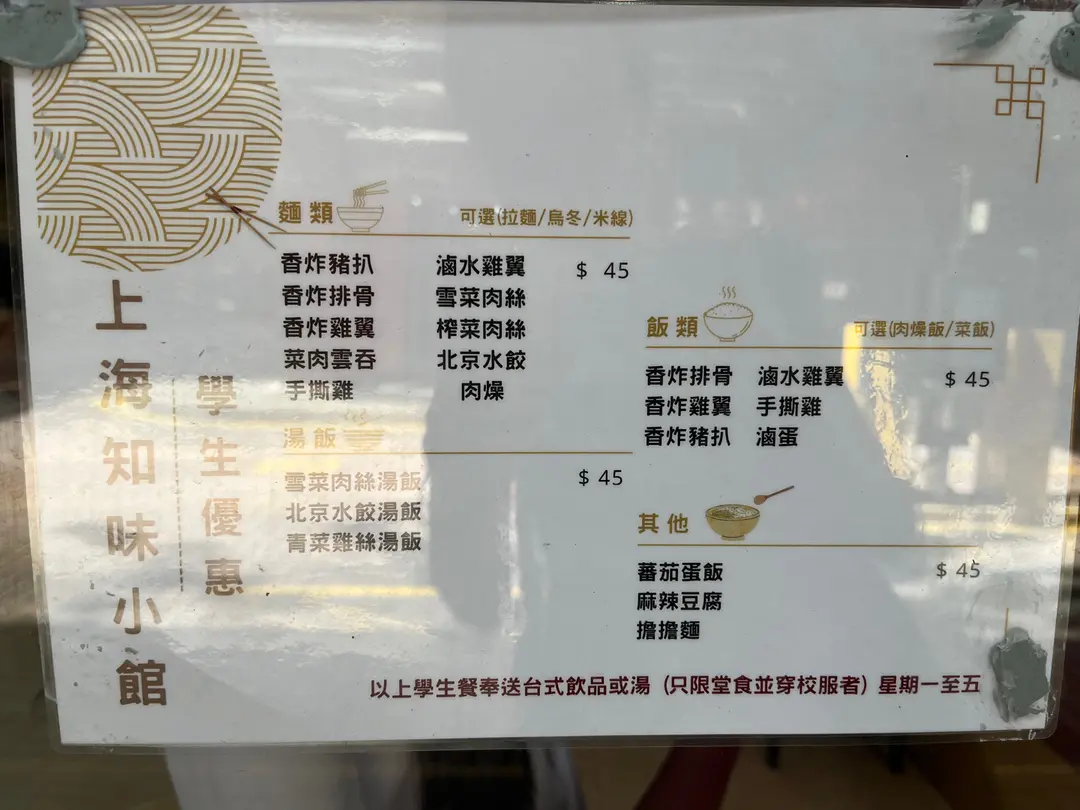 上海知味小館
學生優惠
麵類 可選(拉麵/烏冬/米線)
香炸豬扒 滷水雞翼 $ 45
香炸排骨 雪菜肉絲
香炸雞翼 榨菜肉絲
菜肉雲吞 北京水餃
手撕雞 肉燥
湯飯
雪菜肉絲湯飯 $ 45
北京水餃湯飯
青菜雞絲湯飯
飯類 可選(肉燥飯/菜飯)
香炸排骨 滷水雞翼 $ 45
香炸雞翼 手撕雞
香炸豬扒 滷蛋
其他
蕃茄蛋飯 $ 45
麻辣豆腐
擔擔麵
以上學生餐奉送台式飲品或湯（只限堂食並穿校服者）星期一至五